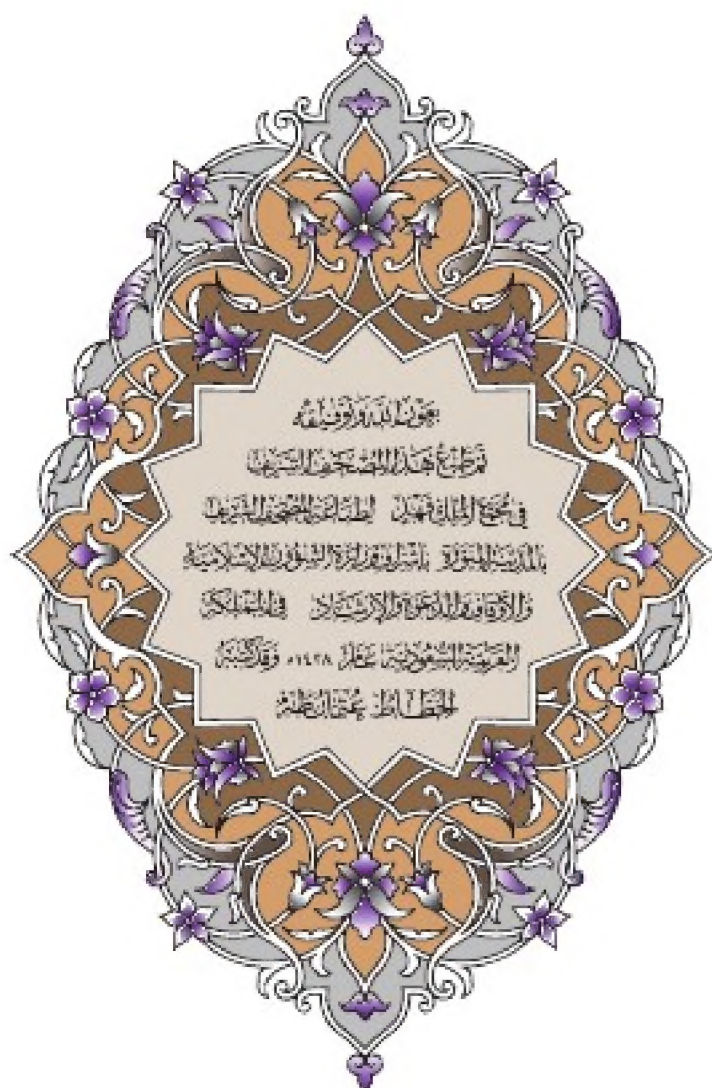 بعون الله وتوفيقه
تم طبع هذا المصحف الشريف
في مجمع الملك فهد لطباعة المصحف الشريف
بالمدينة المنورة بإشراف وزارة الشؤون الإسلامية
والأوقاف والدعوة والإرشاد في المملكة
العربية السعودية عام ١٤٢٨ه وقد كتبه
الخطاط عثمان طه